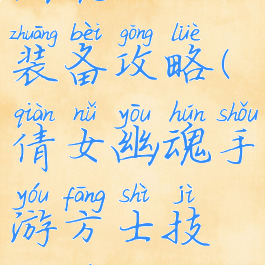 zhuāng bèi gōng lüè
装备攻略(
qiàn nǚ yōu hún shǒu
倩女幽魂手
yóu fāng shì jì
游方士技